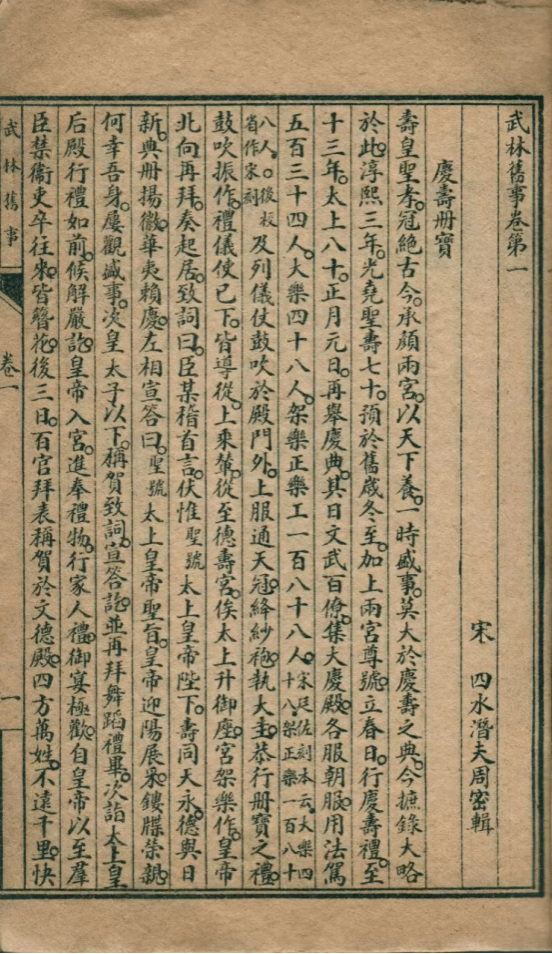 武林舊事卷第一
宋　四水潛夫周密輯
慶壽册寶
壽皇聖孝。冠絶古今。承顔兩宮。以天下養。一時盛事。莫大於慶壽之典。今摭錄大略
於此。淳熙三年。光堯聖壽七十。預於舊歲冬至。加上兩宮尊號。立春日。行慶壽禮。至
十三年。太上八十。正月元日。再舉慶典。其日文武百僚。集大慶殿。各服朝服。用法駕
五百三十四人。大樂四十八人。架樂正樂工一百八十八人。宋廷佐刻本云。大樂四
十八架正樂一百八十
八人。○後板
省作宋刻
及列儀仗鼓吹於殿門外。上服通天冠。絳紗袍。執大圭。恭行册寶之禮。
鼓吹振作。禮儀使已下。皆導從。上乘輦。從至德壽宮。俟太上升御座。宮架樂作。皇帝
北向再拜。奏起居。致詞曰。臣某稽首言。伏惟聖號太上皇帝陛下。壽同天永。德與日
新。典册揚徽。華夷賴慶。左相宣答曰。聖號太上皇帝聖旨。皇帝迎陽展采。鏤牒榮親。
何幸吾身。屢觀盛事。次皇太子以下。稱賀致詞。宣答訖。並再拜舞蹈禮畢。次詣太上皇
后殿行禮如前。候解嚴訖。皇帝入宮。進奉禮物。行家人禮。御宴極歡。自皇帝以至羣
臣禁衛吏卒往來。皆簪花。後三日。百官拜表稱賀於文德殿。四方萬姓。不遠千里。快
武林舊事
卷一
一